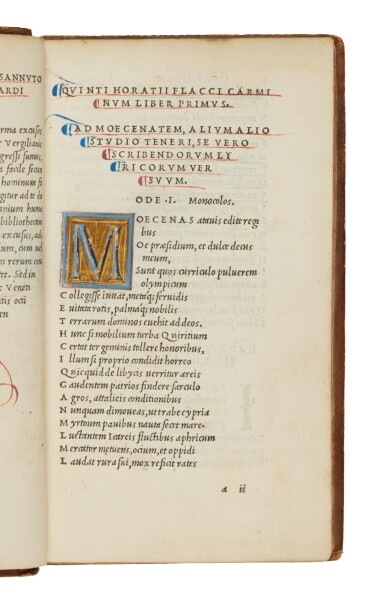 SANNVTO
ARDI
rma excusos
r Vergiliani
gressi sumus,
a facile secum
hominum
gitur ad te
nium
bibliothecam
excusos, ad
ium, cum ud
m rerum cum
tte. Sed in
t Veneti
tis ocii
en
QVINTI HORATII FLACCI CARMI
NVM LIBER PRIMVS.
AD MOECENATEM, ALIVM ALIO
STVDIO TENERI, SE VERO
SCRIBENDORVM LY
RICORVM VER
SVVM.
ODE .I. Monocolos.
MOECENAS atauis edite regi
bus
Oe præsidium, et dulce decus
meum,
Sunt quos curriculo puluerem
olympicum
Collegisse iuuat, metaq; feruidis
Euitata rotis, palmaq; nobilis
Terrarum dominos euehit ad deos.
Hunc si mobilium turba Quiritium
Certat tergeminis tollere honoribus,
Illum si proprio condidit horreo
Quicquid de libycis uerritur areis
Gaudentem patrios findere sarculo
Agros, attalicis conditionibus
Nunquam dimoueas, ut trabe cypria
Myrtoum pauibus nauta secet mare.
Luctantem Icareis fluctibus aphricum
Mercator metuens, ocium, et oppidi
Laudat rura sui, mox reficit rates
a ii